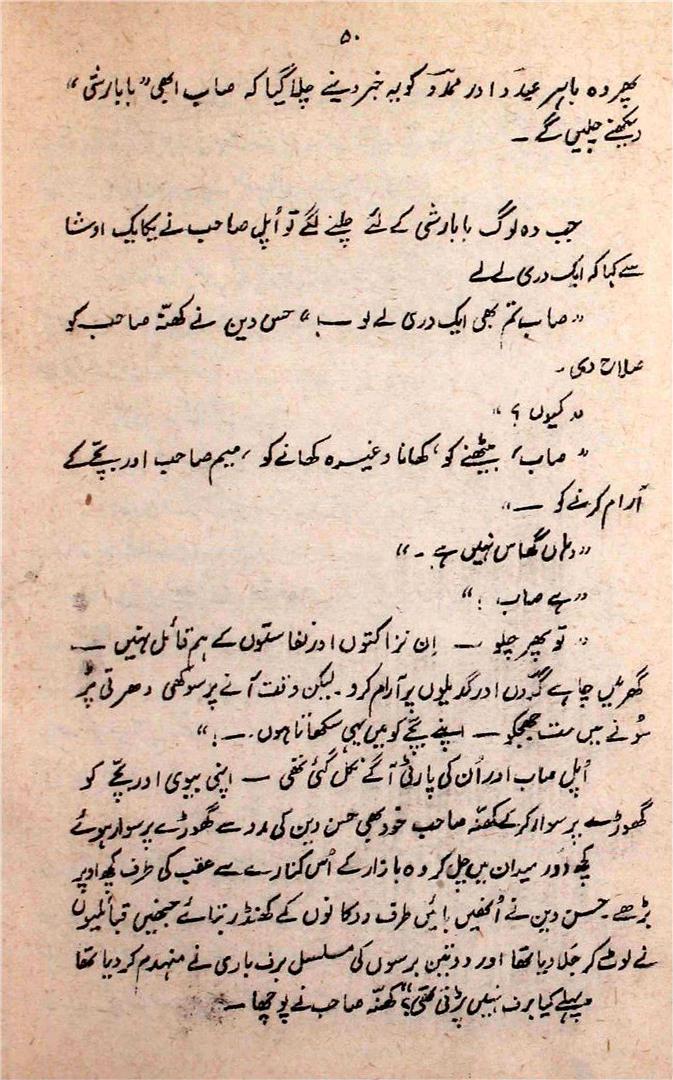 ۵۰
پھر وہ باہر عیدو اور ممدو کو یہ خبر دینے چلا گیا کہ صاب ابھی ”بابا رشی“
دیکھنے چلیں گے ۔
جب وہ لوگ بابا رشی کے لئے چلنے لگے تو اُپل صاحب نے یکایک اوشا
سے کہا کہ ایک دری لے لے
”صاب تم بھی ایک دری لے لو ۔“ حسن دین نے کھنّہ صاحب کو
صلاح دی ۔
”کیوں ؟“
”صاب، بیٹھنے کو، کھانا وغیرہ کھانے کو، میم صاحب اور بچّے کے
آرام کرنے کو —“
”وہاں گھاس نہیں ہے ۔“
”ہے صاب !“
”تو پھر چلو — اِن نزاکتوں اور نفاستوں کے ہم قائل نہیں —
گھر میں چاہے گدّوں اور گدیلوں پر آرام کرو ۔ لیکن وقت آنے پر سوکھی دھرتی پر
سونے میں مت جھجکو — اپنے بچّے کو میں یہی سکھاتا ہوں ۔ — !“
اُپل صاب اور اُن کی پارٹی آگے نکل گئی تھی — اپنی بیوی اور بچّے کو
گھوڑے پر سوار کر کے کھنّہ صاحب خود بھی حسن دین کی مدد سے گھوڑے پر سوار ہوئے
کچھ دُور میدان میں چل کر وہ بازار کے اُس کنارے سے عقب کی طرف کچھ اوپر
بڑھے ۔ حسن دین نے اُنھیں بائیں طرف دوکانوں کے کھنڈر بتائے جنھیں قبائلیوں
نے لوٹ کر جلا دیا تھا اور دو تین برسوں کی مسلسل برف باری نے منہدم کر دیا تھا
”پہلے کیا برف نہیں پڑتی تھی؟“ کھنّہ صاحب نے پوچھا —